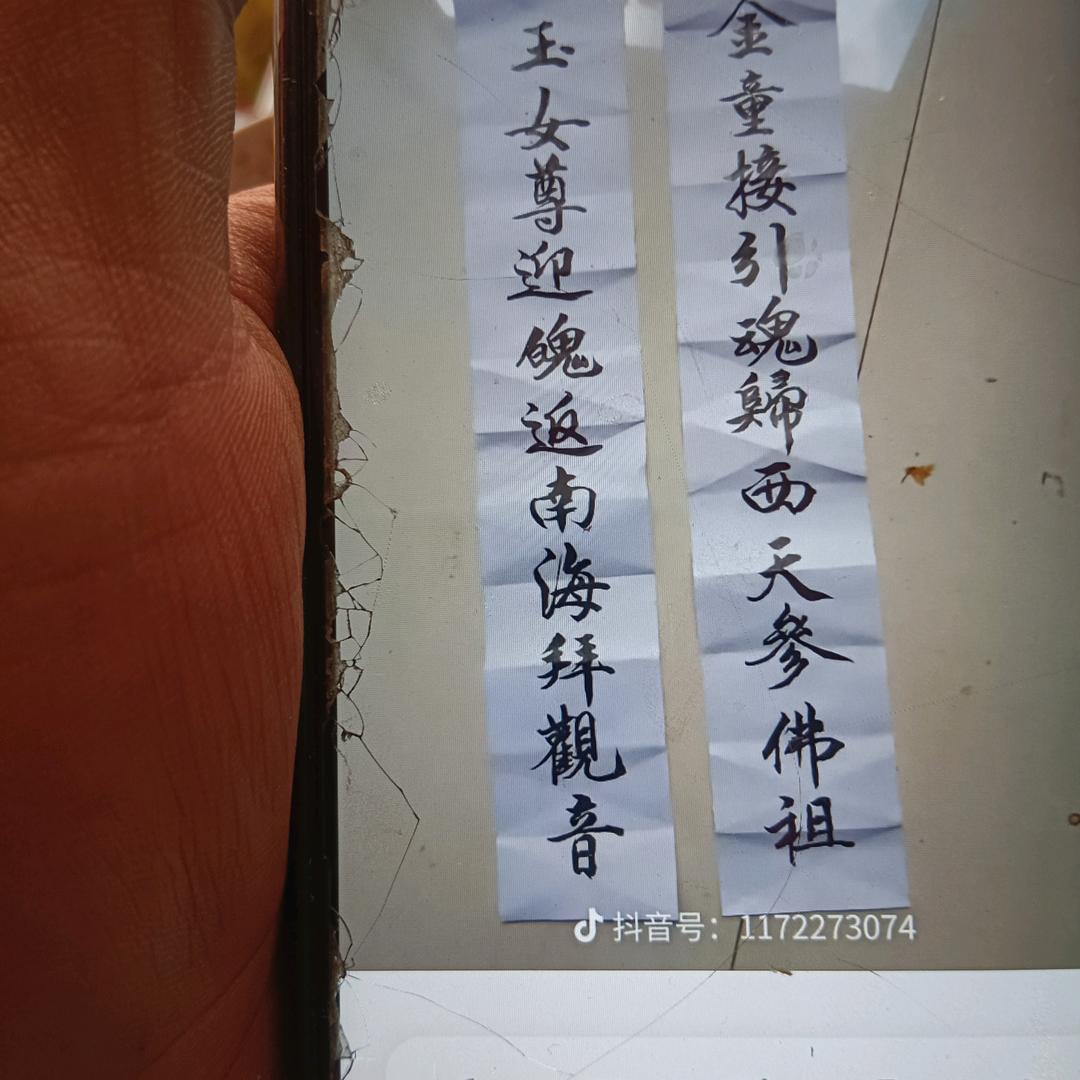 金童接引魂歸西天參佛祖
玉女尊迎魄返南海拜觀音
抖音号：1172273074